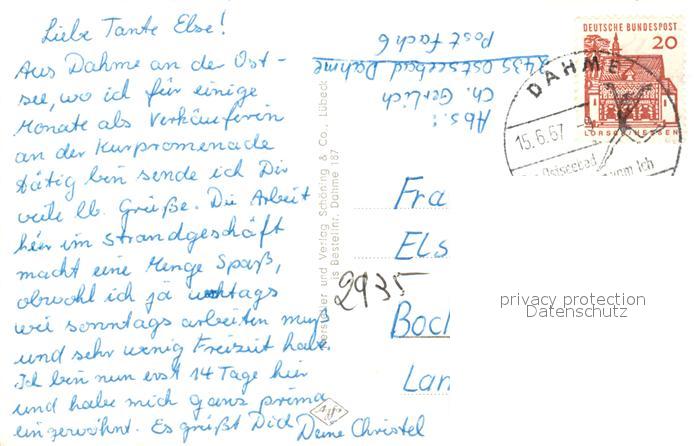 Liebe Tante Else!
Aus Dahme an der Ost-
see, wo ich für einige
Monate als Verkäuferin
an der Kurpromenade
tätig bin sende ich Dir
viele lb. Grüße. Die Arbeit
hier im Strandgeschäft
macht eine Menge Spaß,
obwohl ich ja wochtags
wie sonntags arbeiten muß
und sehr wenig Freizeit habe.
Ich bin nun erst 14 Tage hier
und habe mich ganz prima
eingewöhnt. Es grüßt Dich
Deine Christel
Abs.:
Ch. Gerlich
2435 Ostseebad Dahme
Postfach 6
und Verlag Schöning & Co., Lübeck
Bestellnr. Dahme 187
DEUTSCHE BUNDESPOST
20
LORSCH/HESSEN
DAHME
15.6.67
Ostseebad
Fra
Els
2935
Boch
Lan
privacy protection
Datenschutz